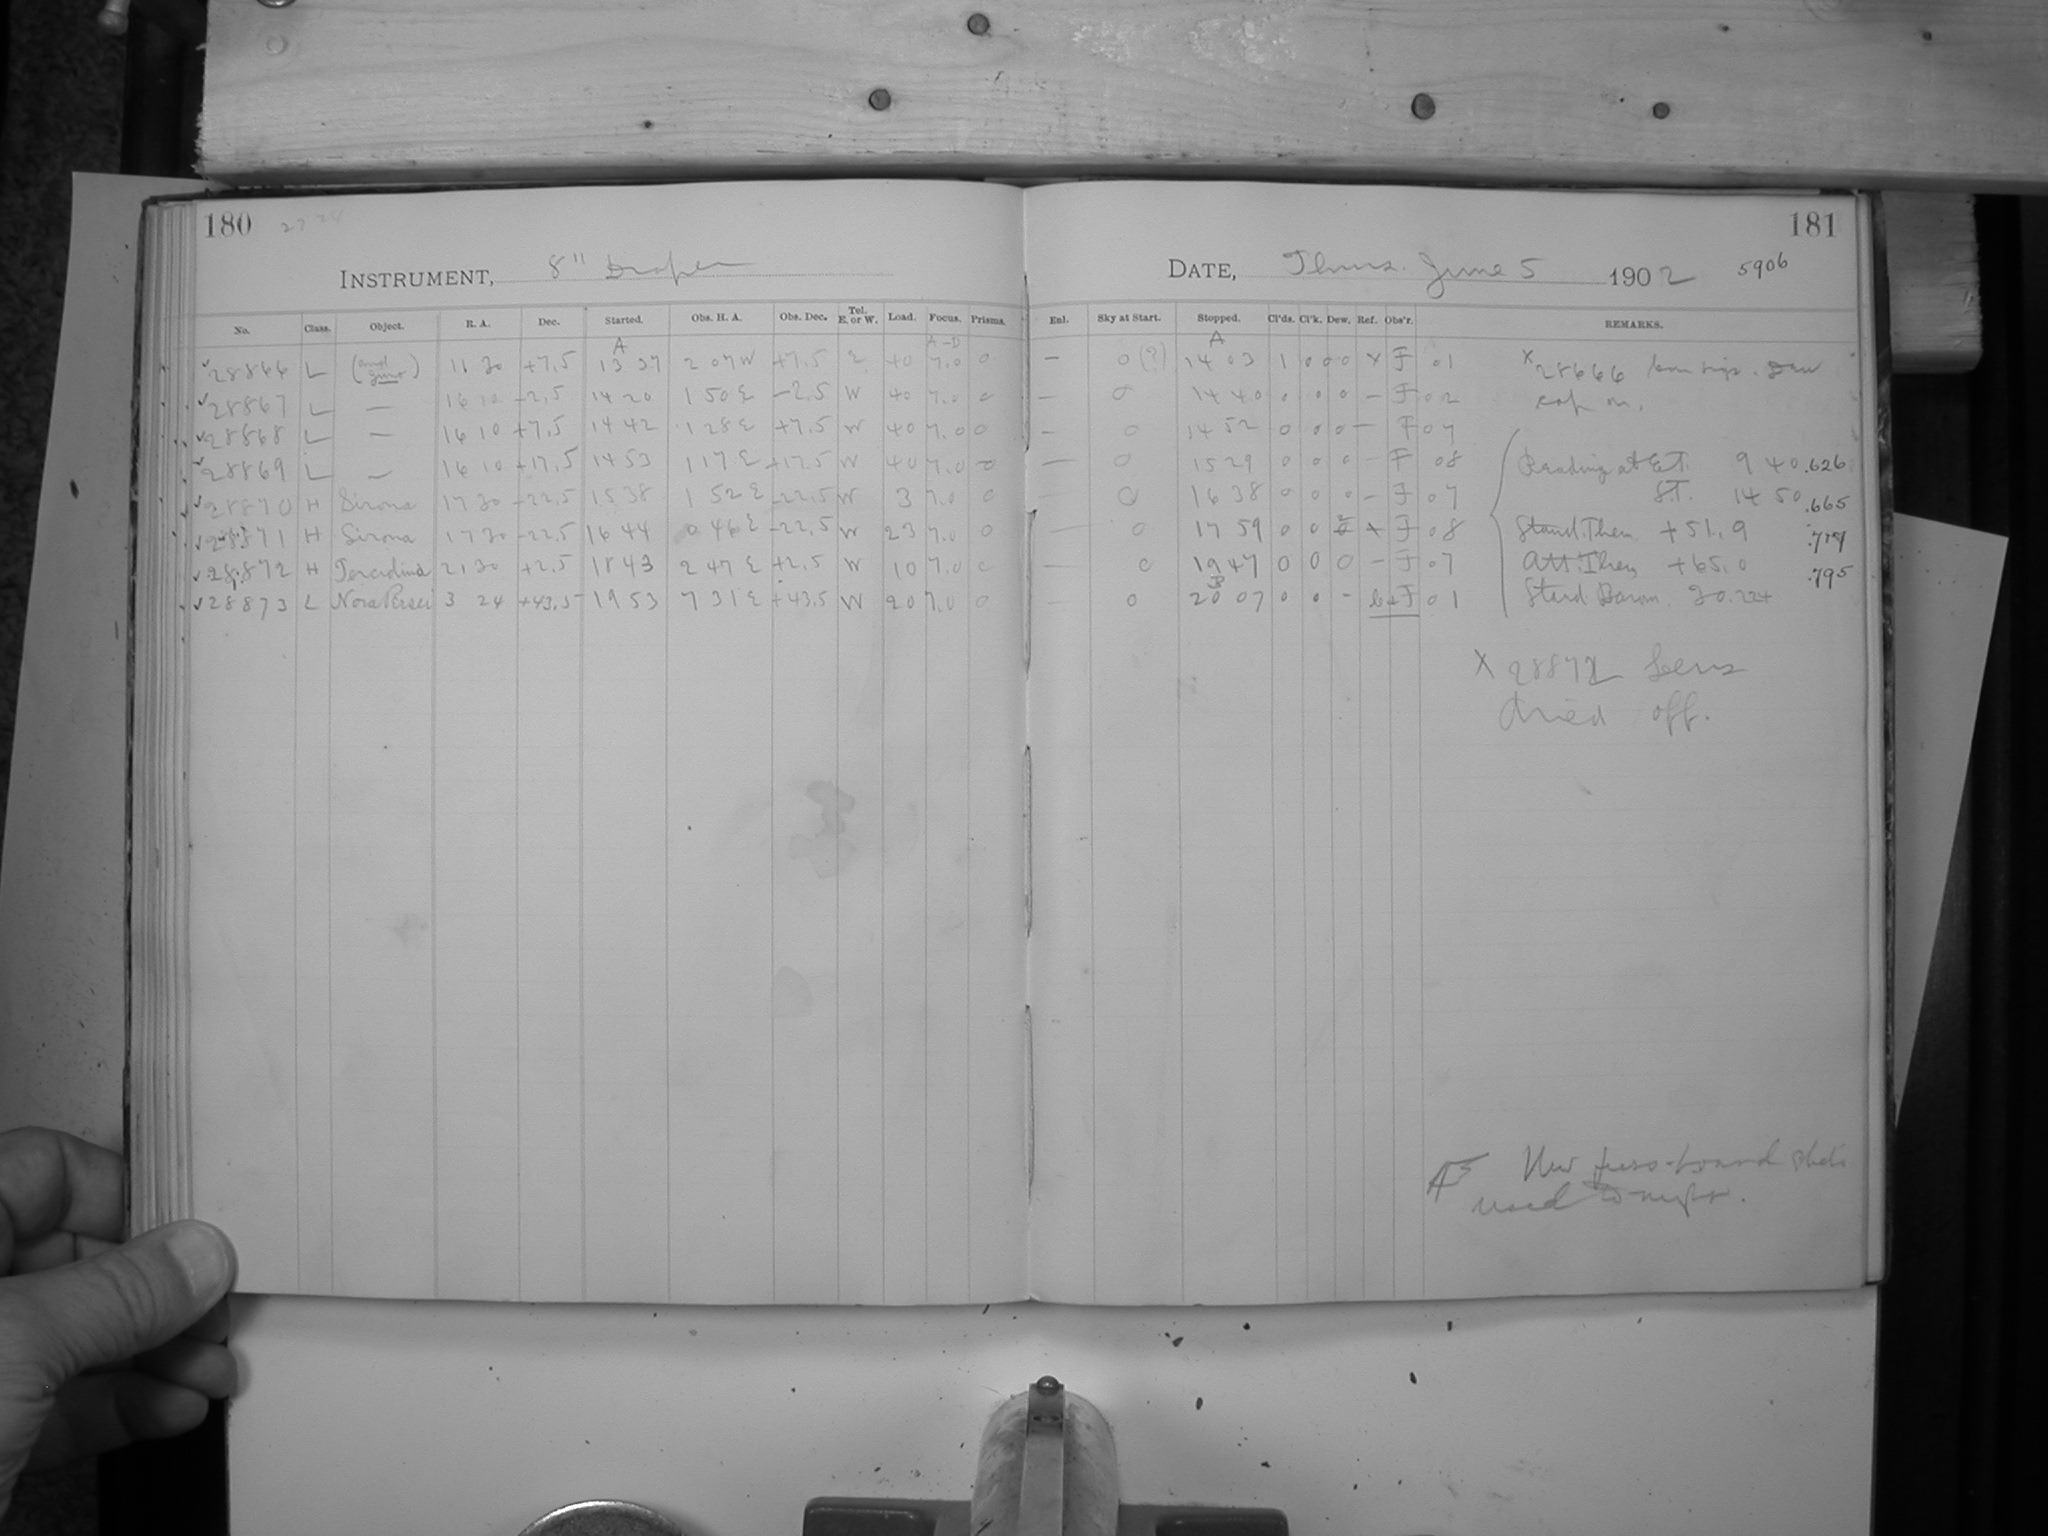 180
181
INSTRUMENT, 8" Draper
DATE, Thurs. June 5 1902 5906
No. Class. Object. R. A. Dec. Started. Obs. H. A. Obs. Dec. Tel. E. or W. Load. Focus. Prisms. Enl. Sky at Start. Stopped. Cl'ds. Cl'k. Dew. Ref. Obs'r. REMARKS.
A A-D A
28866 L 11 30 +7.5 13 37 2 07 W +7.5 E 40 7.0 0 — 0 (?) 14 03 1 0 0 0 x F 01
28867 L — 16 10 -2.5 14 20 1 50 E -2.5 W 40 7.0 0 — 0 14 40 0 0 0 - F 02
28868 L — 16 10 +7.5 14 42 1 28 E +7.5 W 40 7.0 0 — 0 14 52 0 0 0 — F 07
28869 L — 16 10 +17.5 14 53 1 17 E +17.5 W 40 7.0 0 — 0 15 29 0 0 0 - F 08
28870 H Sirona 17 30 -22.5 15 38 1 52 E -22.5 W 3 7.0 0 — 0 16 38 0 0 0 - F 07
28871 H Sirona 17 30 -22.5 16 44 0 46 E -22.5 W 23 7.0 0 — 0 17 59 0 0 x F 08
28872 H Tercidina 21 30 +2.5 18 43 2 47 E +2.5 W 10 7.0 0 — 0 19 47 0 0 0 - F 07
28873 L Nova Persei 3 24 +43.5 19 53 7 31 E +43.5 W 20 7.0 0 — 0 20 07 0 0 - F 01
x 28666 Dew
cap on.
Reading at E.T. 9 40 .626
S.T. 14 50 .665
Stand. Ther. +51.9
Att. Ther. +65.0 .795
Stand Barom. 30.224
x 28872 Lens
dried off.
New press-board
used to-night.